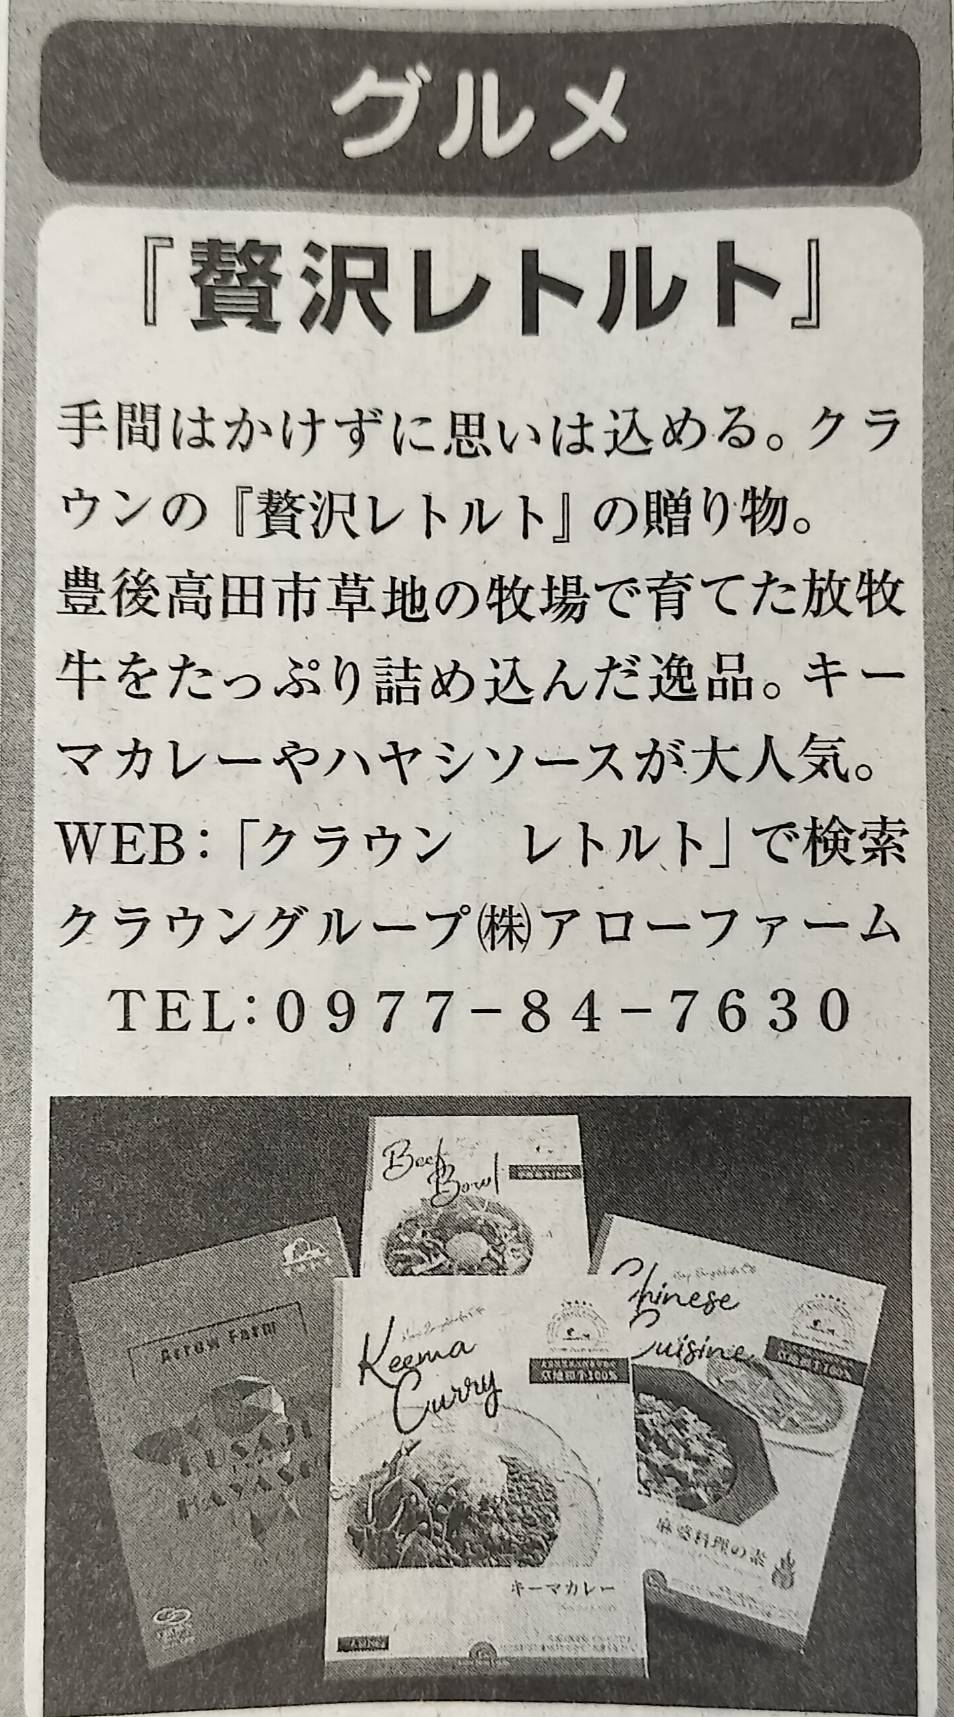 グルメ
『贅沢レトルト』
手間はかけずに思いは込める。クラ
ウンの『贅沢レトルト』の贈り物。
豊後高田市草地の牧場で育てた放牧
牛をたっぷり詰め込んだ逸品。キー
マカレーやハヤシソースが大人気。
WEB：「クラウン　レトルト」で検索
クラウングループ㈱アローファーム
TEL：0977－84－7630
Beef
Bowl
Arrow Farm
KUSAJI
HAYASHI
Keema
Curry
キーマカレー
Chinese
Cuisine
麻婆料理の素